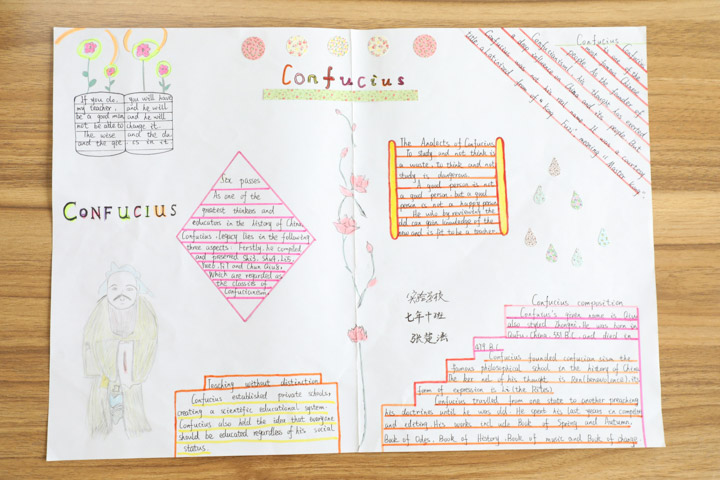 Confucius
If you do. you will have
my teacher, and he will
be a good man, and he will
not be able to change it.
The wise and the do
and the gre is in it
CONFUCIUS
Six passes
As one of the
greatest thinkers and
educators in the history of China,
Confucius, legacy lies in the following
three aspects: Firstly, he compiled
and preserved Shi3, Shu1, Li3,
Yue4, Yi1 and Chun Qiu3,
Which are regarded as
the classics of
Confucianism.
Teaching without distinction
Confucius established private schools,
creating a scientific educational system.
Confucius also hold the idea that everyone
should be educated regardless of his social
status.
The Analects of Confucius
To study and not think is
a waste, to think and not
study is dangerous.
A good person is not
a good person, but a good
person is not a happy person
He who by reviewing the
old can gain knowledge of the
new and is fit to be a teacher.
Confucius
Confucius was not his real name. It was a courtesy
title, a Latinized form of "Kong Fuzi" meaning "Master Kong"
实验学校
七年十班
张楚法
Confucius composition
Confusus's given name is Qiu
also styled Zhongni. He was born in
Qufu, China, 551 B.C. and died in
479 B.C.
Confucius founded confucian ism the
famous philosophical school in the history of China
The ker nel of his thought is Ren(benevolence), its
form of expression is Li (the Rites),
Confucius travlled from one state to another preaching
his doctrines until he was old. He spent his last years in compiling
and editing. His works inclule Book of Spring and Autumn,
Book of Odes, Book of History, Book of music and Book of change